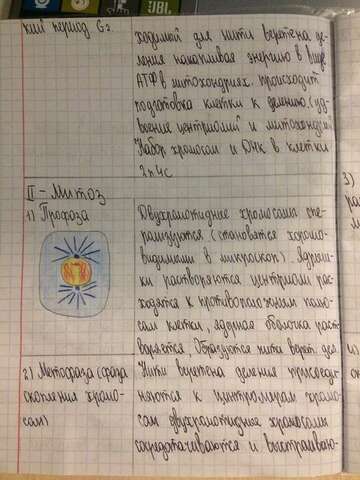 ший период G2
ходимой для нити веретена де-
ления накапливая энергию в виде
АТФ в митохондриях. происходит
подготовка клетки к делению (уд-
воение центриолей и митохондрий
Набор хромосом и ДНК в клетки
2n4c
II - Митоз
1) Профаза
Двухроматидные хромосомы спе-
рализуются (становятся хорошо-
видимыми в микроскоп). Ядрыш-
ки растворяются центриоли рас-
ходятся к противоположным полю-
сам клетки, ядерная оболочка раст-
воряется, Образуются нити верет. дел.
2) Метофаза (фаза
скопления хромо-
сом)
Нити веретена деления присоеди-
няются к центромерам хромо-
сом двухроматидные хромосомы
сосредотачиваются и выстраиваю-
3)
4)
JBL